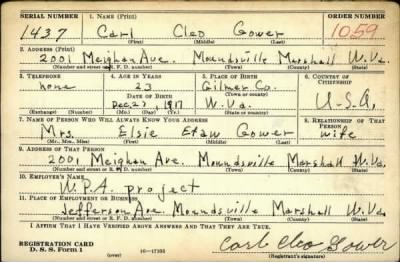 SERIAL NUMBER 1. NAME (Print) ORDER NUMBER
1437 Carl Cleo Gower 1059
(First) (Middle) (Last)
2. ADDRESS (Print)
2001 Meighan Ave. Moundsville Marshall W.Va.
(Number and street or R. F. D. number) (Town) (County) (State)
3. TELEPHONE 4. AGE IN YEARS 5. PLACE OF BIRTH 6. COUNTRY OF CITIZENSHIP
none 23 Gilmer Co.
DATE OF BIRTH (Town or county)
Dec. 27, 1917 W.Va. U.S.A.
(Exchange) (Number) (Mo.) (Day) (Yr.) (State or country)
7. NAME OF PERSON WHO WILL ALWAYS KNOW YOUR ADDRESS 8. RELATIONSHIP OF THAT PERSON
Mrs. Elsie Gower wife
(Mr., Mrs., Miss) (First) (Middle) (Last)
9. ADDRESS OF THAT PERSON
2001 Meighan Ave. Moundsville Marshall W.Va.
(Number and street or R. F. D. number) (Town) (County) (State)
10. EMPLOYER'S NAME
W.P.A. project
11. PLACE OF EMPLOYMENT OR BUSINESS
Jefferson Ave. Moundsville Marshall W.Va.
(Number and street or R. F. D. number) (Town) (County) (State)
I AFFIRM THAT I HAVE VERIFIED ABOVE ANSWERS AND THAT THEY ARE TRUE.
REGISTRATION CARD
D. S. S. Form 1 (over) 16—17105 Carl Cleo Gower
(Registrant's signature)